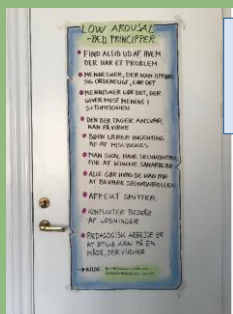 LOW AROUSAL
-PÆD. PRINCIPPER
• FIND ALTID UD AF HVEM
DER HAR ET PROBLEM
• MENNESKER, DER KAN OPFØRE
SIG ORDENTLIGT, GØR DET
• MENNESKER GØR DET, DER
GIVER MEST MENING I
SITUATIONEN
• DEN DER TAGER ANSVAR,
KAN PÅVIRKE
• BØRN LÆRER INGENTING
AF AT MISLYKKES
• MAN SKAL HAVE SELVKONTROL
FOR AT KUNNE SAMARBEJDE
• ALLE GØR HVAD DE KAN FOR
AT BEVARE SELVKONTROLLEN
• AFFEKT SMITTER
• KONFLIKTER BESTÅR
AF LØSNINGER
• PÆDAGOGISK ARBEJDE ER
AT STILLE KRAV PÅ EN
MÅDE, DER VIRKER
→ KILDE: